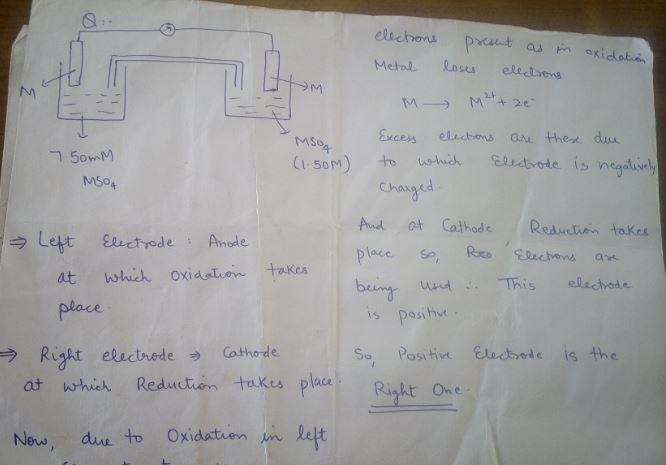 Q:-
M
M
7.50mM
MSO4
MSO4
(1.50M)
⇒ Left Electrode : Anode
at which oxidation takes
place.
⇒ Right electrode ⇒ Cathode
at which Reduction takes place.
Now, due to Oxidation in left
electrons present as in oxidation
Metal loses electrons
M → M2+ + 2e-
Excess electrons are there due
to which Electrode is negatively
charged.
And at Cathode, Reduction takes
place so, Electrons are
being used ∴ This electrode
is positive.
So, Positive Electrode is the
Right One.